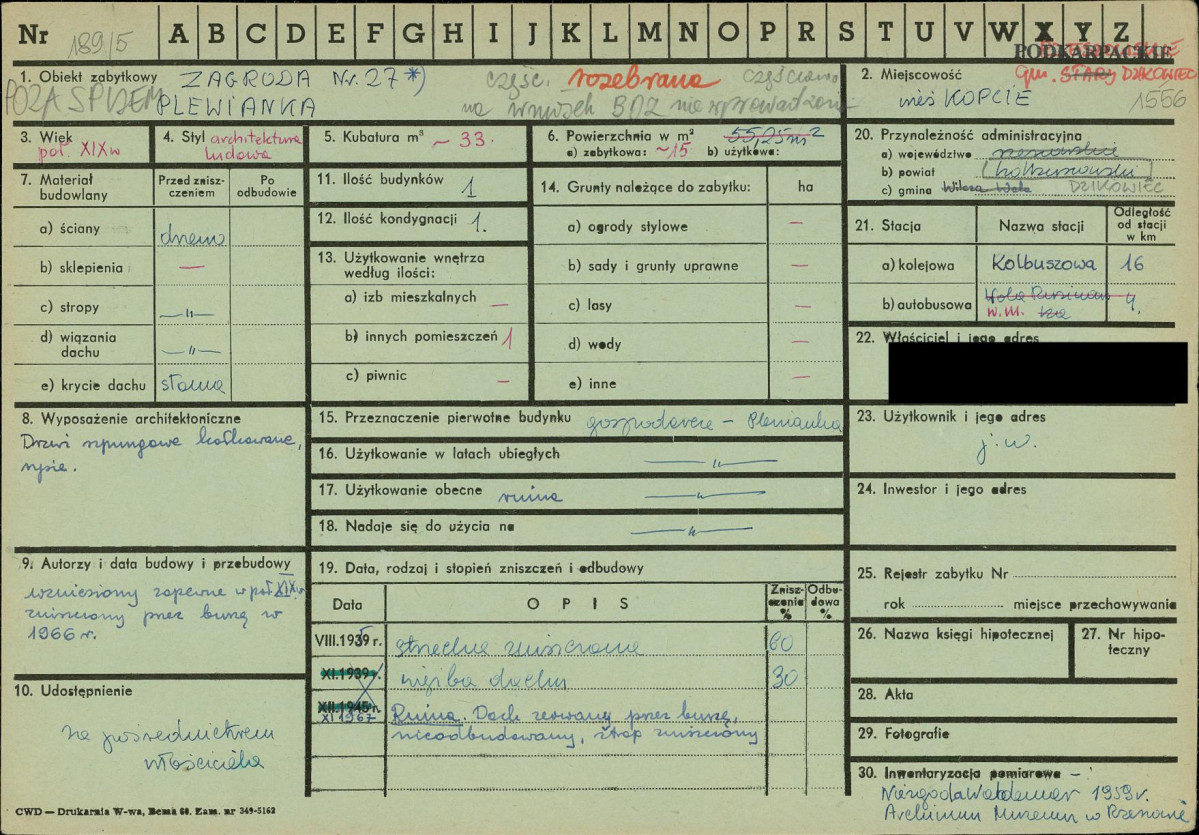 Nr 189/5 A B C D E F G H I J K L M N O P R S T U V W X Y Z
PODKARPACKIE
1. Obiekt zabytkowy ZAGRODA Nr. 27 *) częśc. rozebrana częściowo
POZA SPISEM PLEWIANKA na wniosek nie wprowadzono
2. Miejscowość gm. STARY DZIKOWIEC
wieś KOPCIE 1556
3. Wiek
poł. XIX w
4. Styl architektura
ludowa
5. Kubatura m³ ~ 33.
6. Powierzchnia w m² 55,25 m²
a) zabytkowa: ~15 b) użytkowa:
7. Materiał budowlany
Przed zniszczeniem
Po odbudowie
a) ściany drewno
b) sklepienia —
c) stropy —"—
d) wiązania dachu —"—
e) krycie dachu słoma
8. Wyposażenie architektoniczne
Drzwi szpungowe kołkowane,
9. Autorzy i data budowy i przebudowy
wzniesiony zapewne w poł XIX w
zniszczony przez burzę w
1966 r.
10. Udostępnienie
za pośrednictwem
właściciela
CWD — Drukarnia W-wa, Bema 60. Zam. nr 349-5162
11. Ilość budynków 1
12. Ilość kondygnacji 1.
13. Użytkowanie wnętrza
według ilości:
a) izb mieszkalnych —
b) innych pomieszczeń 1
c) piwnic —
14. Grunty należące do zabytku: ha
a) ogrody stylowe —
b) sady i grunty uprawne —
c) lasy —
d) wody —
e) inne —
15. Przeznaczenie pierwotne budynku gospodarcze – Plewianka
16. Użytkowanie w latach ubiegłych —"—
17. Użytkowanie obecne ruina —"—
18. Nadaje się do użycia na —"—
19. Data, rodzaj i stopień zniszczeń i odbudowy
Data OPIS Zniszczenia % Odbudowa %
VIII.1939 r. strzecha zniszczona 60
XI.1939 r. więźba dachu 30
XII.1945 r.
XI 1967 Ruina. Dach zerwany przez burzę,
nieodbudowany, strop zniszczony
20. Przynależność administracyjna
a) województwo rzeszowskie
b) powiat kolbuszowski
c) gmina Wilcza Wola DZIKOWIEC
21. Stacja Nazwa stacji Odległość od stacji w km
a) kolejowa Kolbuszowa 16
b) autobusowa Wola 4.
w. m.
22. Właściciel i jego adres
23. Użytkownik i jego adres
j. w.
24. Inwestor i jego adres
25. Rejestr zabytku Nr
rok miejsce przechowywania
26. Nazwa księgi hipotecznej
27. Nr hipoteczny
28. Akta
29. Fotografie
30. Inwentaryzacja pomiarowa –
Niezgoda Waldemar 1959 r.
Archiwum Muzeum w Rzeszowie